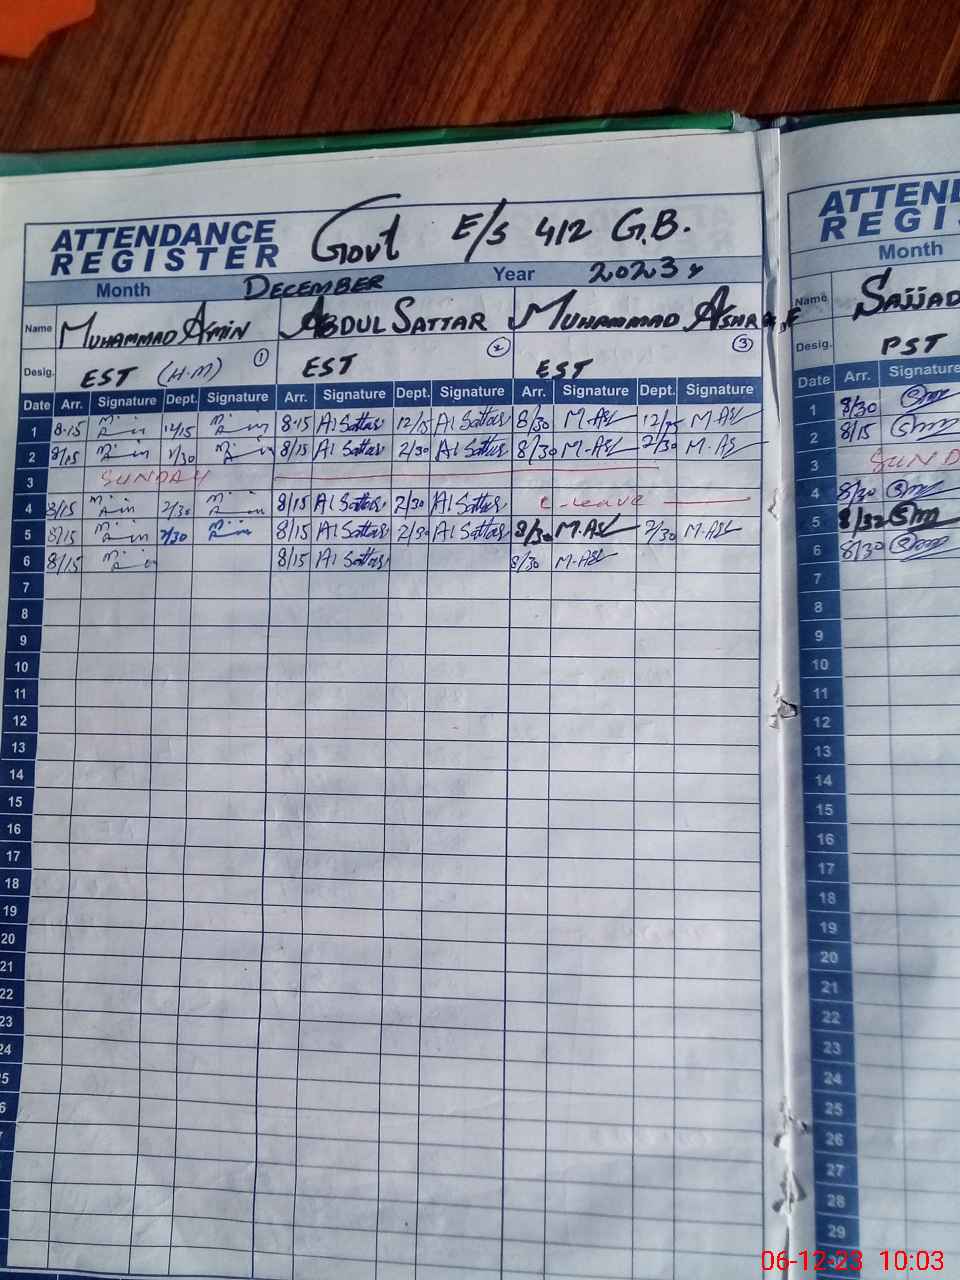 ATTENDANCE REGISTER Govt E/S 412 G.B.
Month DECEMBER Year 2023
Name MUHAMMAD AMIN ABDUL SATTAR MUHAMMAD ASHRAF
Desig. EST (H.M) 1 EST 2 EST 3
Date Arr. Signature Dept. Signature Arr. Signature Dept. Signature Arr. Signature Dept. Signature
1 8-15 12/15 8-15 Al Sattar 12/15 Al Sattar 8/30 M-ASL 12/15 M ASL
2 8/15 8/15 Al Sattar 2/30 Al Sattar 8/30 M-ASL 2/30 M-ASL
3 SUNDAY
4 8/15 2/30 8/15 Al Sattar 2/30 Al Sattar C-leave
5 8/15 2/30 8/15 Al Sattar 2/30 Al Sattar 8/30 M.ASL 2/30 M-ASL
6 8/15 8/15 Al Sattar 8/30 M-ASL
7
8
9
10
11
12
13
14
15
16
17
18
19
20
21
22
23
24
5
6
ATTEND
REGIS
Month
Name SAJJAD
Desig. PST
Date Arr. Signature
1 8/30
2 8/15
3 SUND
4 8/30
5
6 8/30
7
8
9
10
11
12
13
14
15
16
17
18
19
20
21
22
23
24
25
26
27
28
29
06-12-23 10:03